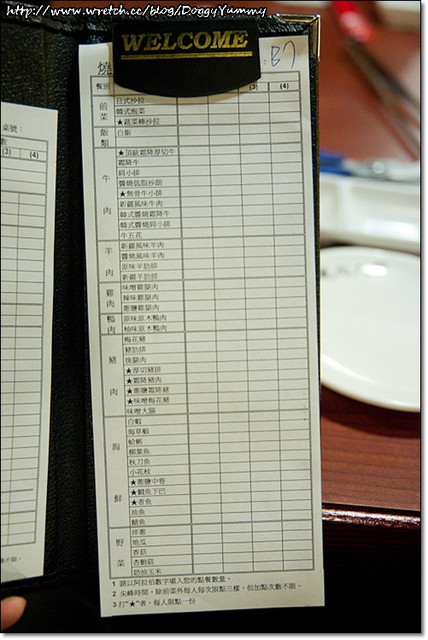 http://www.wretch.cc/blog/DoggyYummy
WELCOME
燒
: B7
桌號:
餐別
(3) (4)
(3) (4)
前菜
日式沙拉
韓式泡菜
★蔬菜棒沙拉
飯類
白飯
牛肉
★頂級霜降厚切牛
霜降牛
肩小排
醬燒低脂沙朗
★無骨牛小排
新疆風味牛肉
韓式醬燒霜降牛
韓式醬燒肩小排
牛五花
羊肉
新疆風味羊肉
醬燒風味羊肉
原味羊肋排
新疆羊肋排
雞肉
味噌雞腿肉
辣味雞腿肉
蔥鹽雞腿肉
鴨肉
原味原木鴨肉
柚味原木鴨肉
豬肉
梅花豬
豬肋排
後腿肉
★厚切豬排
★霜降豬肉
★蔥鹽霜降豬
★味噌梅花豬
味噌大腸
海鮮
白蝦
海草蝦
蛤蜊
柳葉魚
秋刀魚
小花枝
★蔥鹽中卷
★鯛魚下巴
★香魚
油魚
鯖魚
野菜
洋蔥
地瓜
香菇
杏鮑菇
奶油玉米
1 請以阿拉伯數字填入您的點餐數量。
2 尖峰時間，除前菜外每人每次限點三樣，但加點次數不限。
3 打"★"者，每人限點一份